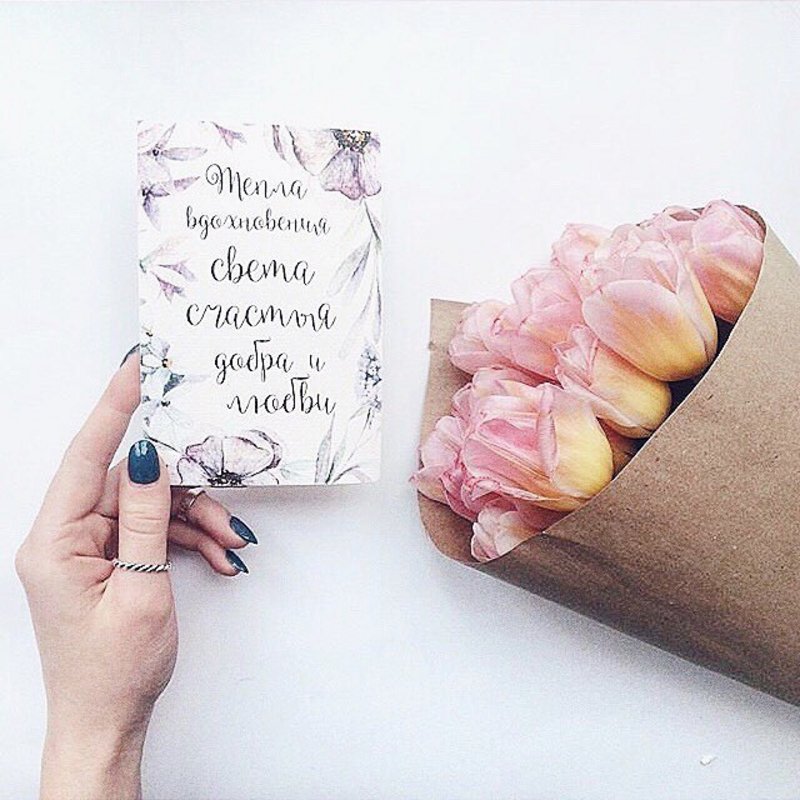 Тепла
вдохновения
света
счастья
добра и
любви